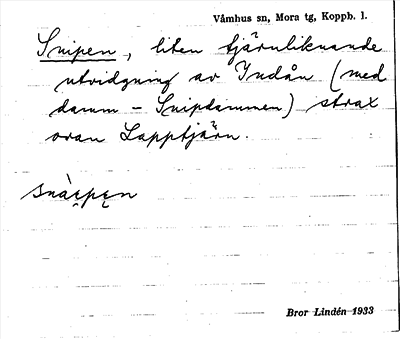 Våmhus sn, Mora tg, Koppb. l.
Snipen, liten tjärnliknande
utvidgning av Indån (med
damm - Snipdammen) strax
ovan Lapptjärn.
snàe̯pe̢n
Bror Lindén 1933